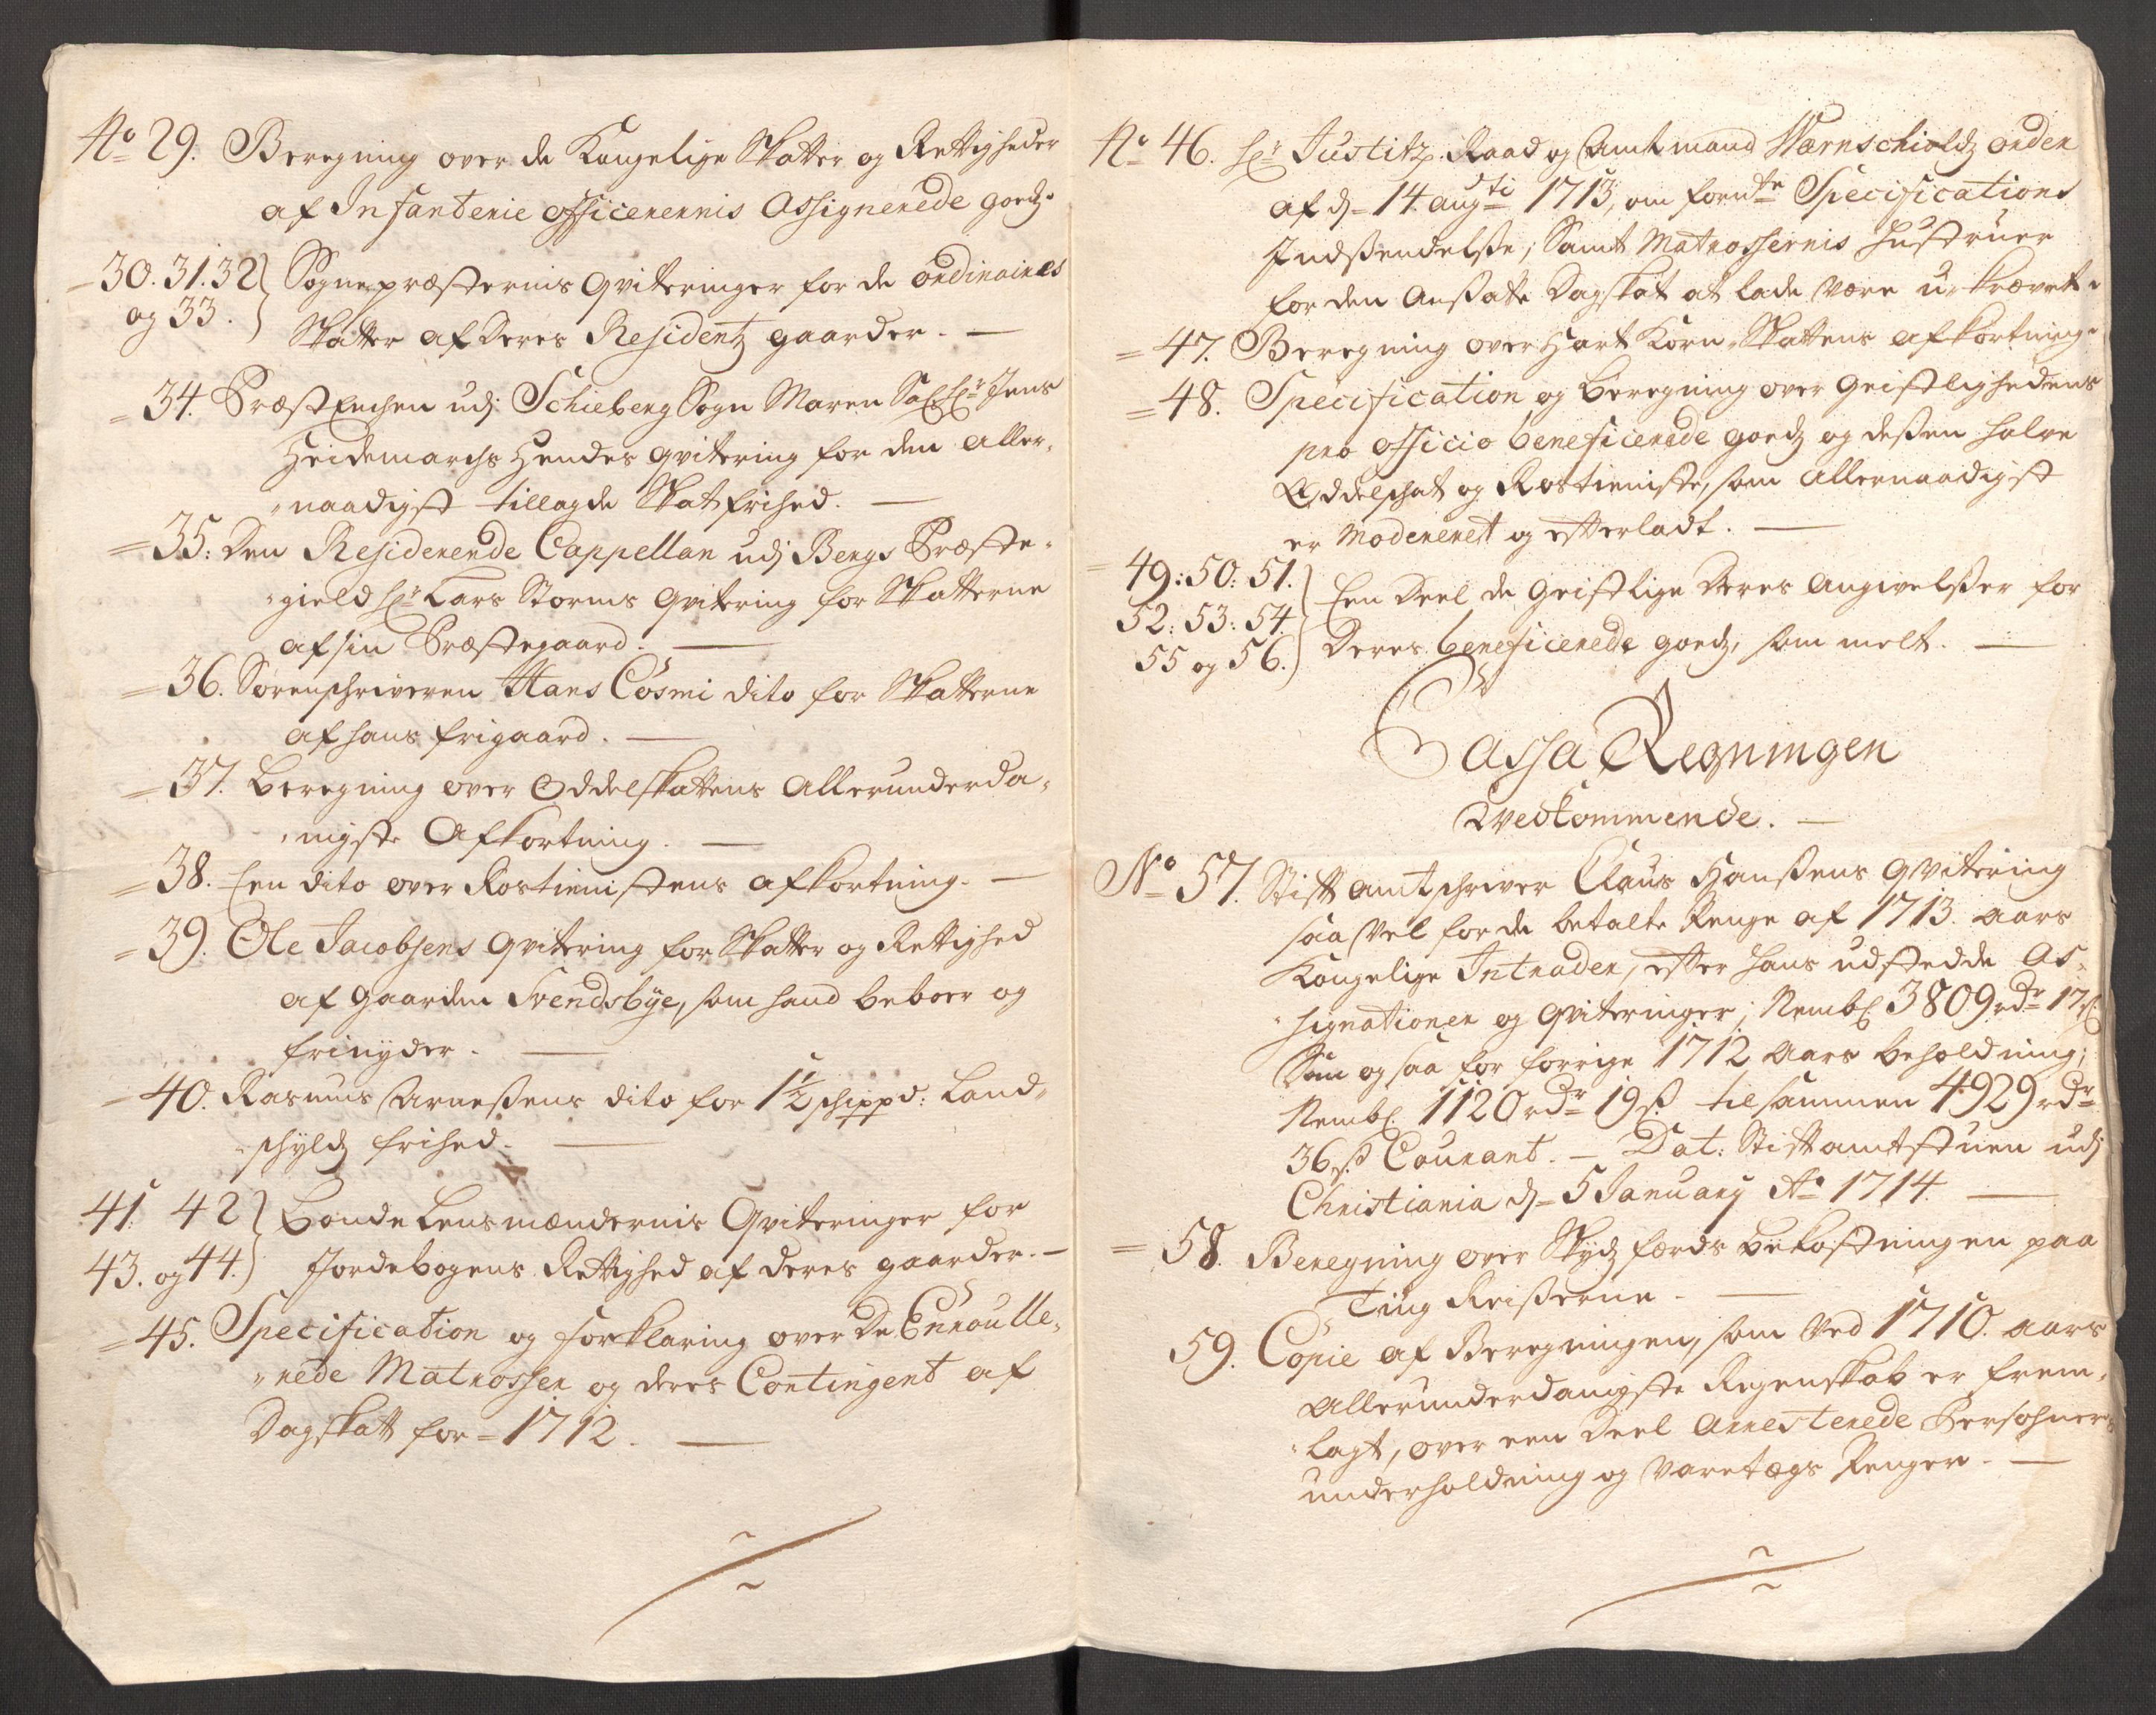 No 29. Beregning over de Kongelige Skatter og Rettigheder
af Infanterie officerernis Assignerede goedz.
30. 31. 32 Sognepræsternis qviteringer for de ordinaires
og 33. Skatter af Deres Residentz gaarder. —
34. Præst Enchen udj Schieberg Sogn Maren Sal. Hr. Jens
Heidemarchs Hendes qvitering for den aller-
naadigst tillagde Skatfrihed. —
35: Den Residerende Cappellan udj Bergs Præste-
gield Hr. Lars Storms qvitering for Skatterne
af sin Præstegaard. —
36. Sorenschriveren Hans Cosmi dito for Skatterne
af hans frigaard. —
37. Beregning over Oddelskattens Allerunderda-
nigste Afkortning. —
38. Een dito over Rostienistens afkortning. —
39. Ole Jacobsens qvitering for Skatter og Rettighed
af gaarden Svendsbye, som hand beboer og
frinyder. —
40. Rasmus Arneßens dito for 1½ schippd: Land-
schyldz frihed. —
41. 42 Bonde Lensmændernis Qviteringer for
43. og 44. Jordebogens Rettighed af deres gaarder. —
45. Specification og forklaring over De Enroulle-
rede Matrosser og deres Contingent af
Dagskatt for 1712. —
No 46. Hr. Justitz Raad og Amtmand Wærnschioldz orden
af d. 14 augusti 1713, om fornte Specifications
Indßendelße, Samt Matrossernis Hustruer
for den Anßatte Dagskat at lade være u-krævet.
47. Beregning over Hart Korn-Skattens afkortning.
48. Specification og Beregning over Geistlighedens
pro officio beneficerede goedz og deßen halve
Oddelschat og Rostieniste, som Allernaadigst
er Moderenet og efterladt. —
49: 50: 51. Een Deel de Geistlige Deres Angivelßer for
52: 53: 54. Deres beneficerede goedz, som melt. —
55 og 56.
Cassa Regningen
Vedkommende. —
No 57. Stift Amtschriver Claus Hanßens Qvitering
saa vel for de betalte Penge af 1713. aars
Kongelige Intrader, efter hans udstedde As-
signationer og qviteringer, Nembl. 3809 rdr 17 ß
Som og saa for forrige 1712 Aars beholdning,
Nembl. 1120 rdr 19 ß. tilsammen 4929 rdr
36 ß Courant. — Dat: Stiftamtstuen udj
Christiania d. 5 January Ao 1714. —
58. Beregning over Skydzfærds bekostningen paa
Ting Reißerne. —
59. Copie af Beregningen, som ved 1710. aars
Allerunderdanigste Regenskab er frem-
lagt, over een Deel Arresterede Persohners
underholdning og Varetægs Penger. —